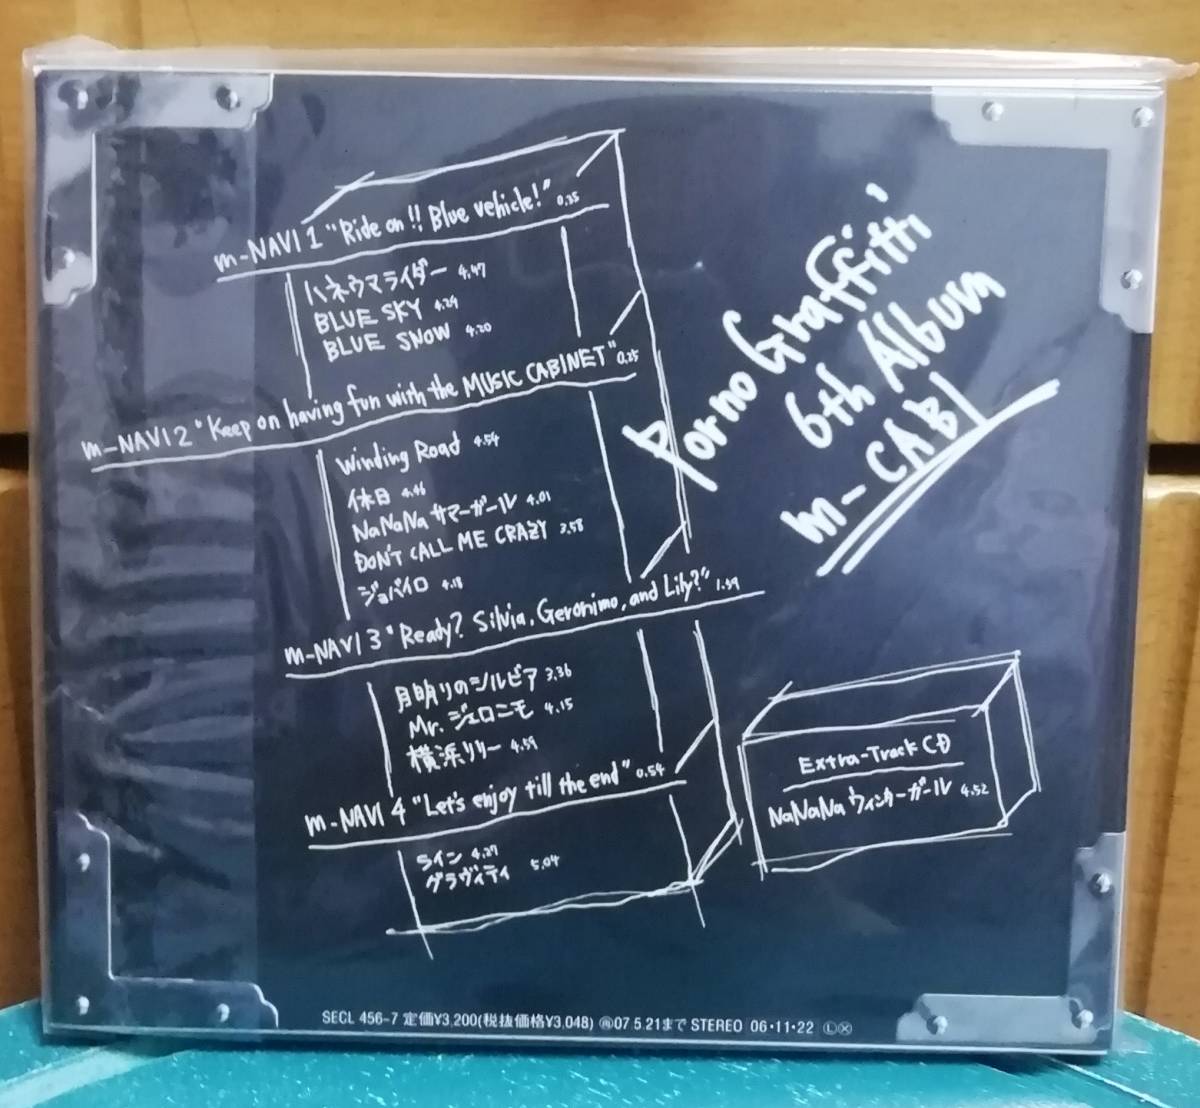 m-NAVI 1 "Ride on!! Blue vehicle!" 0.35
ハネウマライダー 4.47
BLUE SKY 4.29
BLUE SNOW 4.20
m-NAVI 2 "Keep on having fun with the MUSIC CABINET" 0.25
Winding Road 4.54
休日 4.46
NaNaNa サマーガール 4.01
DON'T CALL ME CRAZY 3.58
ジョバイロ 4.18
m-NAVI 3 "Ready? Silvia, Geronimo, and Lily?" 1.59
月明りのシルビア 3.36
Mr. ジェロニモ 4.15
横浜リリー 4.59
m-NAVI 4 "Let's enjoy till the end" 0.54
ライン 4.27
グラヴィティ 5.04
Porno Graffitti
6th Album
m-CABI
Extra-Track CD
NaNaNa ウィンターガール 4.52
SECL 456-7 定価¥3,200(税抜価格¥3,048) Ⓡ07.5.21まで STEREO 06・11・22 Ⓛ Ⓧ